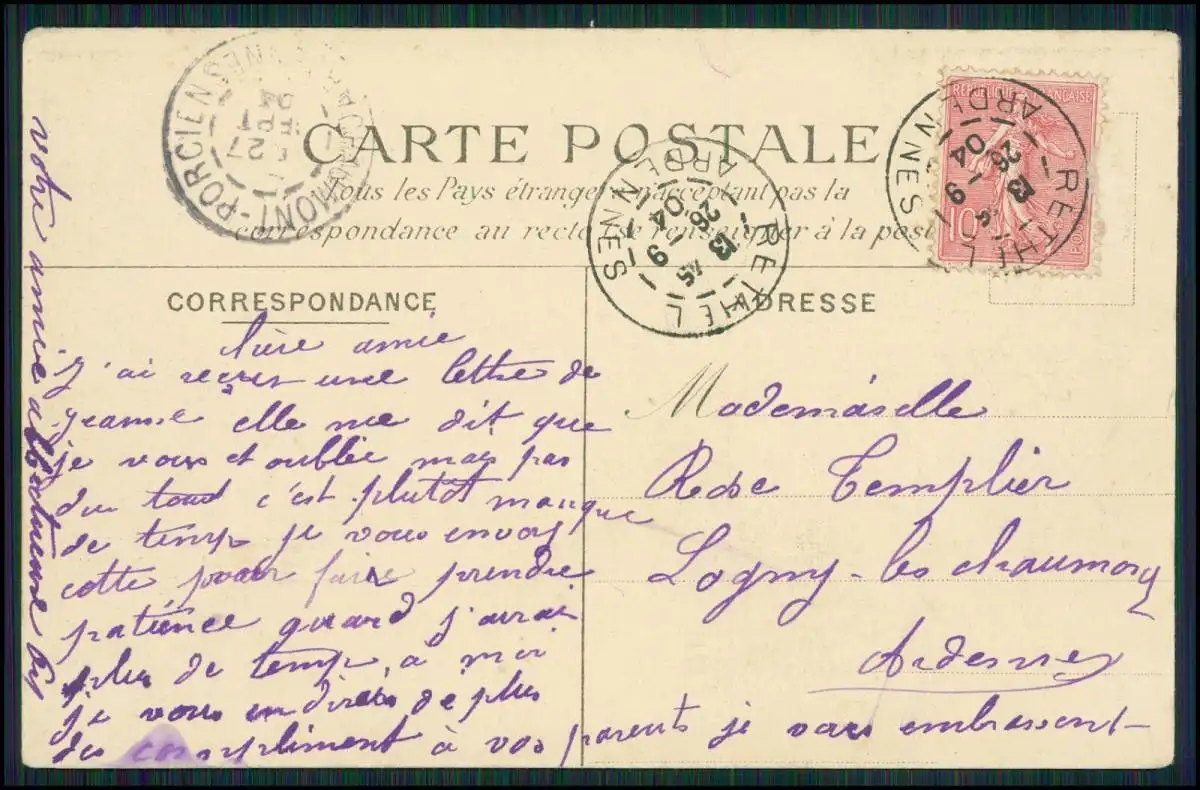 CARTE POSTALE
Tous les Pays étrangers n'acceptant pas la
correspondance au recto se renseigner à la poste
CHAUMONT-PORCIEN
27
SEPT
04
RETHEL
ARDENNES
13
26 - 9
04
REPUBLIQUE FRANÇAISE
10
POSTES
RETHEL
ARDENNES
13
26 - 9
04
CORRESPONDANCE
amie
j'ai reçus une lettre de
jeanne elle me dit que
je vous et oublié mais pas
du tout c'est plutot manque
de temp je vous envois
cette pour faire prendre
patience quand j'aurai
plus de temp, a moi
je vous en dirais de plus
des compliment à vos parents je vous embrassent
votre amie
ADRESSE
Mademoiselle
Rose Templier
Logny-les chaumonq
Ardennes